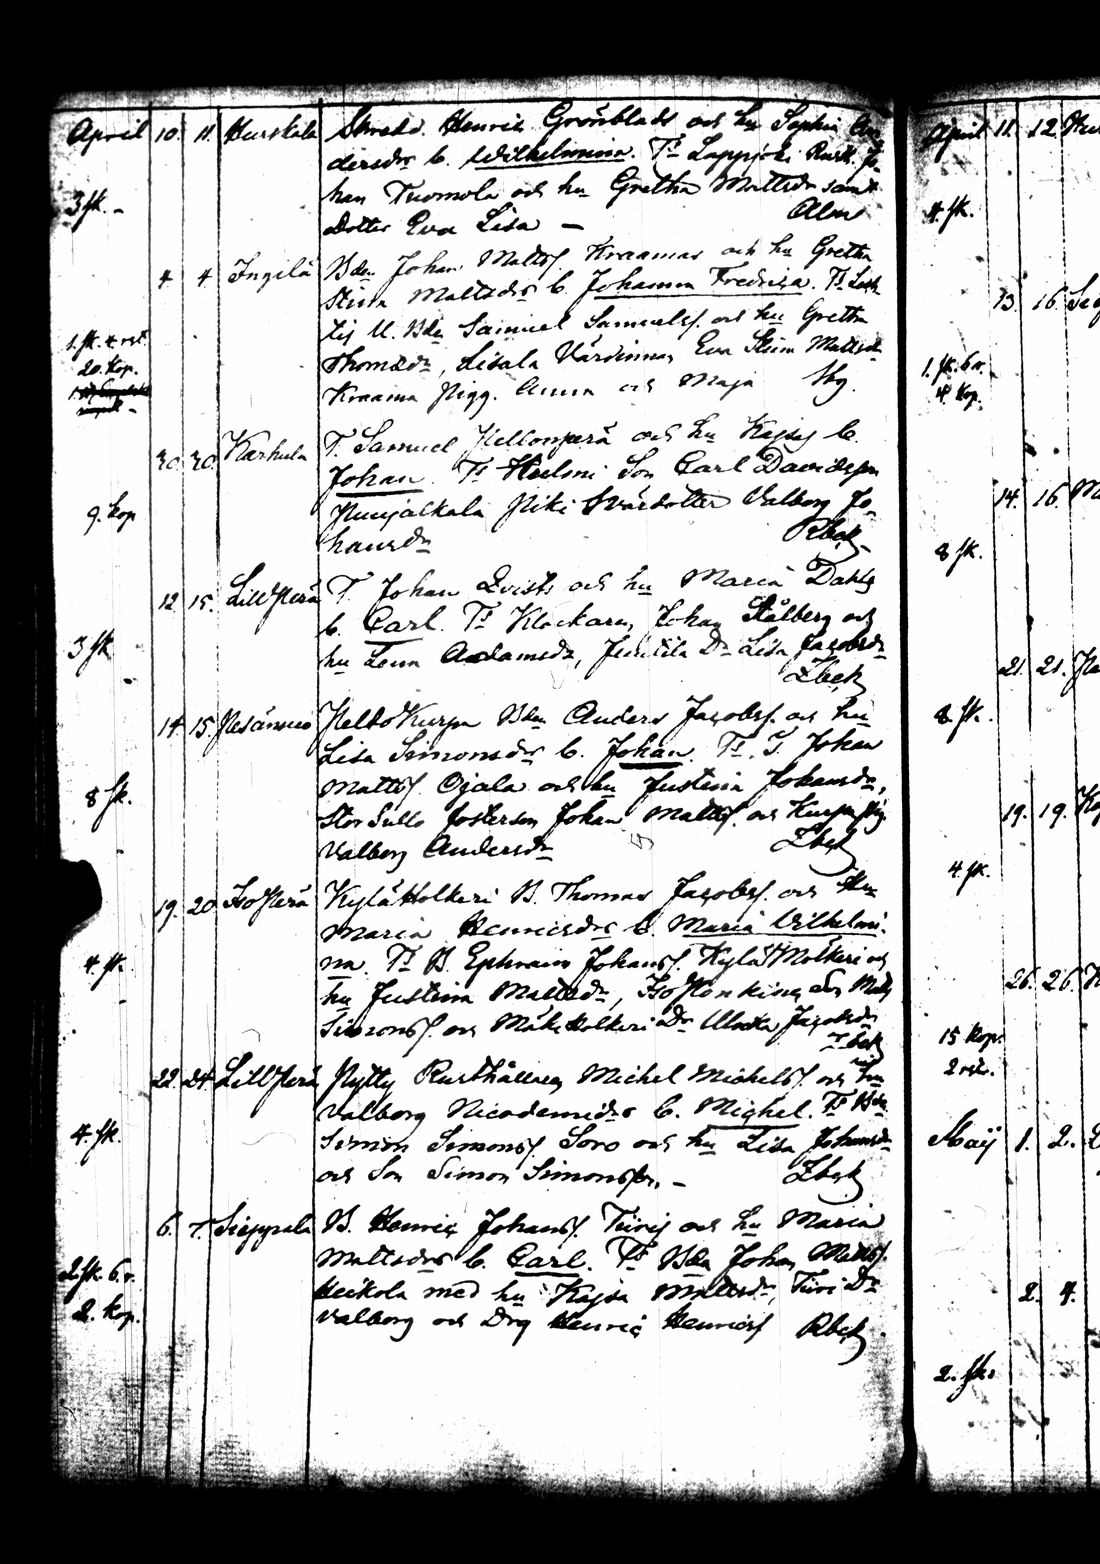 April 10. 11. Hurskala Skredd. Henric Grönblads och hu Sophia An
dersdr b. Wilhelmina. Ts Lappjoki Rusth. Jo-
3 sk. - han Tuomola och hu Gretha Mattsdr samt
Dotter Eva Lisa — Alm
4 4 Ingilä Bdn Johan Mattss. Kraamas och hu Gretha
Stina Mattsdrs b. Johanna Fredrica. Ts
U. Bdn Samuel Samuelss. och hu Gretha
1. sk. 4 rst. Thomædr, Lisala Värdinnan Eva Stina Mattsdr
20. Kop. Kraama Pigg. Anna och Maja
30 30 Karhula T. Samuel Hellonperä och hu Kajsas b.
Johan. Ts Heelmi Son Carl Davidsson
9. kop Piki Svärdotter Valborg Jo-
hansdr Rbck
12 15. LillPerä T. Johan Qvists och hu Maria Dahls
b. Carl. Ts Klockaren Johan Stålberg och
3 sk. hu Lena Adamsdr, Junttila Dr Lisa Jacobsdr
Zbck
14 15. Pesänsuo PeldoKurpa Bdn Anders Jacobss. och hu
Lisa Simonsdrs b. Johan. Ts. T. Johan
Mattss. Ojala och hu Justina Johansdr,
8 sk. Stor Sullo fosterson Johan Mattss. och Kurpa pig
Valborg Andersdr Zbck
19. 20 IsoPerä KyläHolkeri B. Thomas Jacobss. och Hu
Maria Henricsdrs b. Maria Vilhelmi-
4. sk. na. Ts B. Ephraim Johanss. Kylä Holkeri och
hu Justina Mattsdr, Son Matts
Simonss. och MäkiHolkeri Dr Ulrika Jacobsdr
Zbck
22. 24. LillPerä Pytty Rusthållaren Michel Michelss. och hu
Valborg Nicodemidrs b. Michel. Ts Bdn
4. sk. Simon Simonss. Soro och hu Lisa Johansdr
och Son Simon Simonsson. - Zbck
6. 7. Seppälä B. Henric Johanss. Turis och hu Maria
Mattsdrs b. Carl. Ts Bdn Johan Mattss.
2 sk. 6 r. Heikola med hu Kajsa Mattsdr, Turi Dr
2. kop. Valborg och Drg Henric Henricss Rbck
April 11. 12.
4. sk.
13. 16.
1. sk. 6 r.
4 Kop.
14. 16.
8 sk.
21. 21.
8. sk.
19. 19.
4. sk.
26. 26.
15 Kop.
2 rst.
Maij 1. 2.
2. 4.
2. sk.